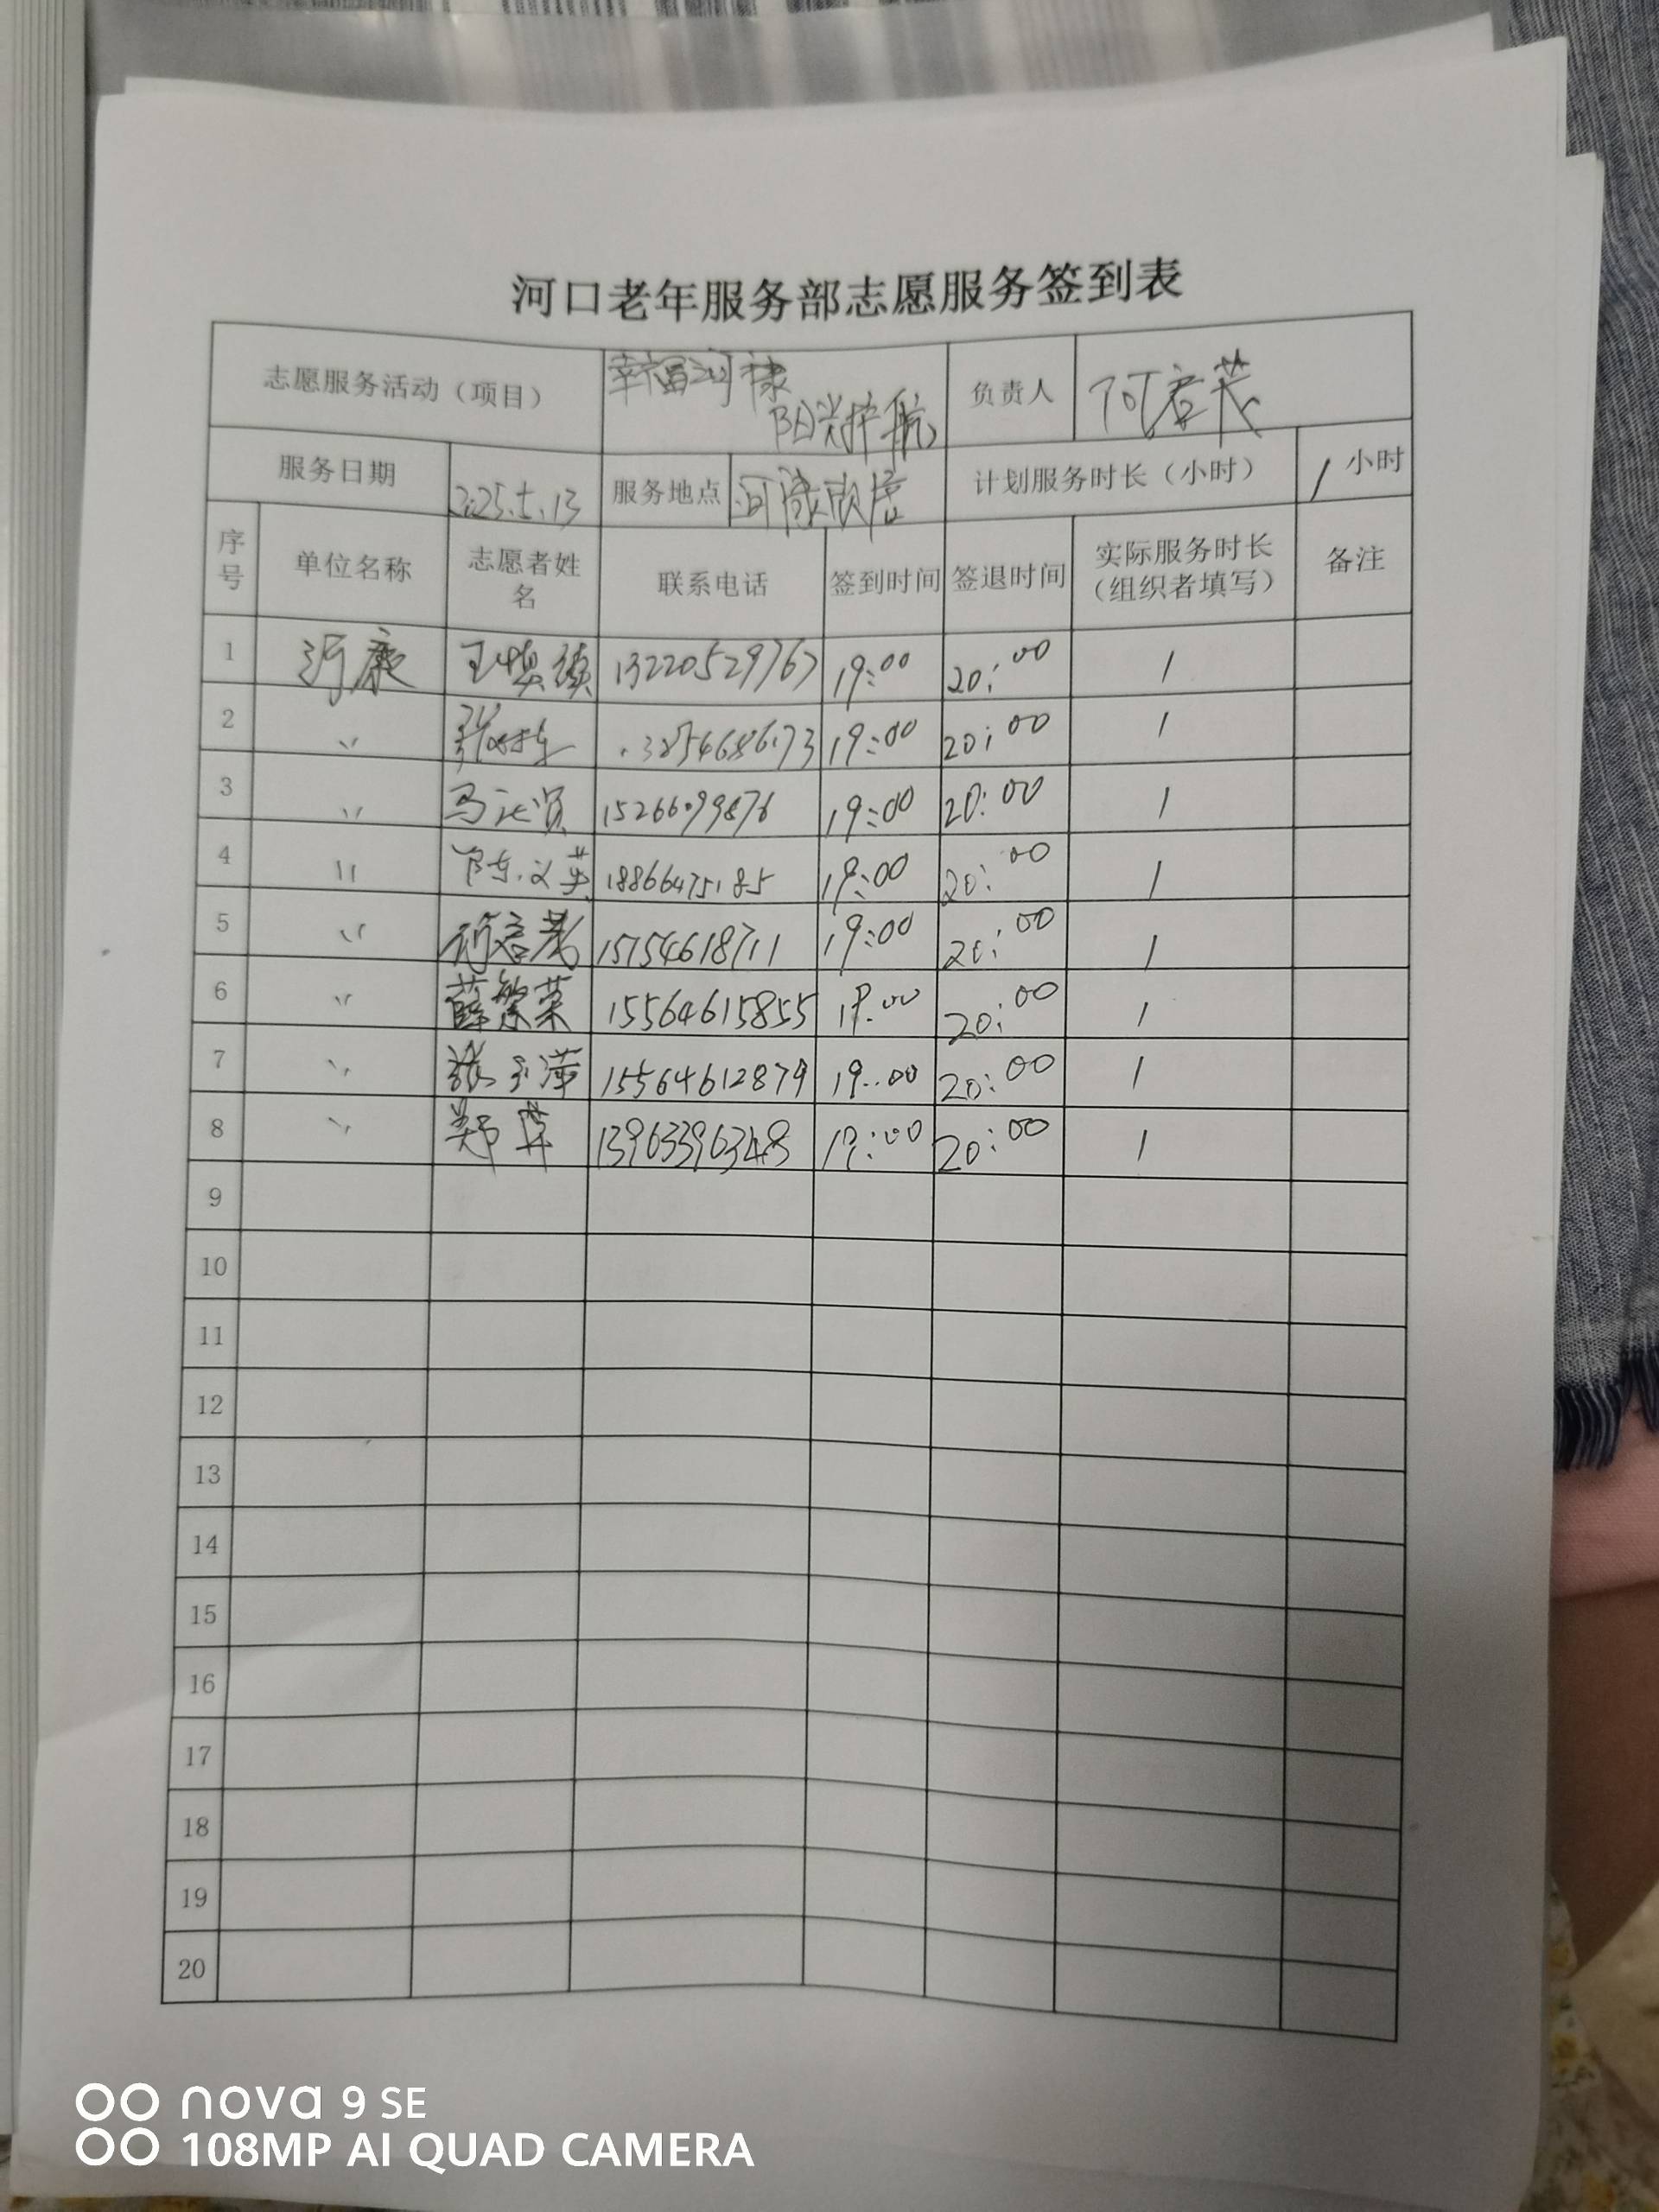 河口老年服务部志愿服务签到表
志愿服务活动（项目） 幸福河康 阳光护航 负责人
服务日期 2025.5.13 服务地点 河康 计划服务时长（小时） 1 小时
序号 单位名称 志愿者姓名 联系电话 签到时间 签退时间 实际服务时长（组织者填写） 备注
1 河康 13220529767 19:00 20:00 1
2 〃 19:00 20:00 1
3 〃 15266099876 19:00 20:00 1
4 〃 陈文英 18866475185 19:00 20:00 1
5 〃 15754618711 19:00 20:00 1
6 〃 薛繁荣 15564615855 19:00 20:00 1
7 〃 张玉萍 15564612879 19:00 20:00 1
8 〃 郑萍 13963396348 19:00 20:00 1
9
10
11
12
13
14
15
16
17
18
19
20
nova 9 SE
108MP AI QUAD CAMERA